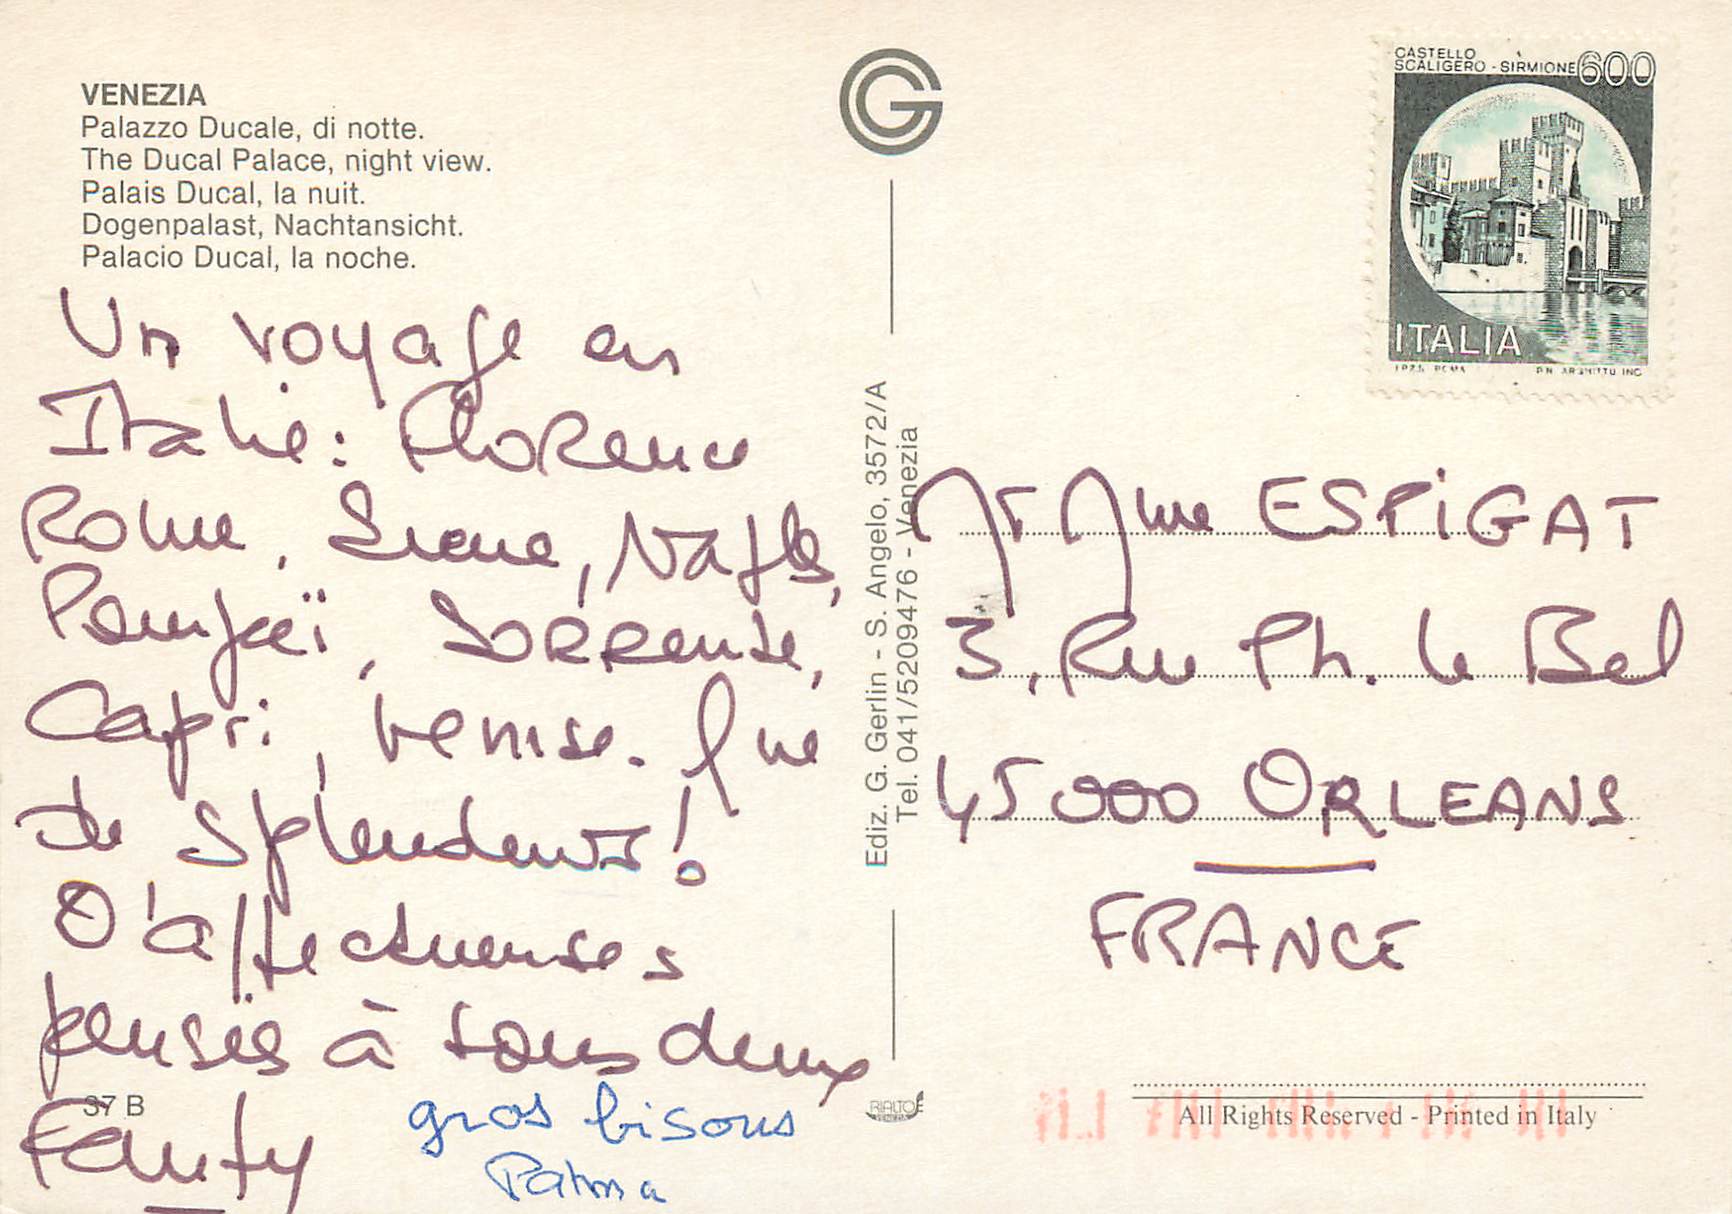 VENEZIA
Palazzo Ducale, di notte.
The Ducal Palace, night view.
Palais Ducal, la nuit.
Dogenpalast, Nachtansicht.
Palacio Ducal, la noche.
Un voyage en
Italie: Florence
Rome, Sienne, Naples,
Pompeï, Sorrente,
Capri, Venise. Que
de splendeurs!
D'affectueuses
pensées à tous deux
Fanfy
gros bisous
37 B
G
Ediz. G. Gerlin - S. Angelo, 3572/A
Tel. 041/5209476 - Venezia
RIALTO
VENEZIA
CASTELLO
SCALIGERO - SIRMIONE 600
ITALIA
I.P.Z.S. ROMA
Mr Mme ESPIGAT
3, Rue Ph. le Bel
45000 ORLEANS
FRANCE
All Rights Reserved - Printed in Italy